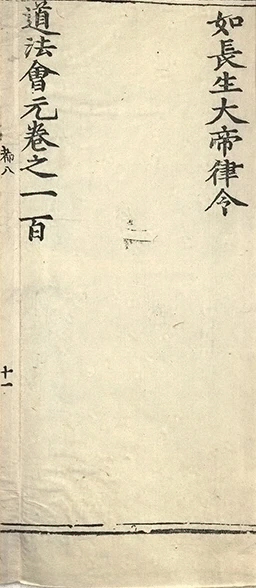 如長生大帝律令
道法會元卷之一百
八
十一